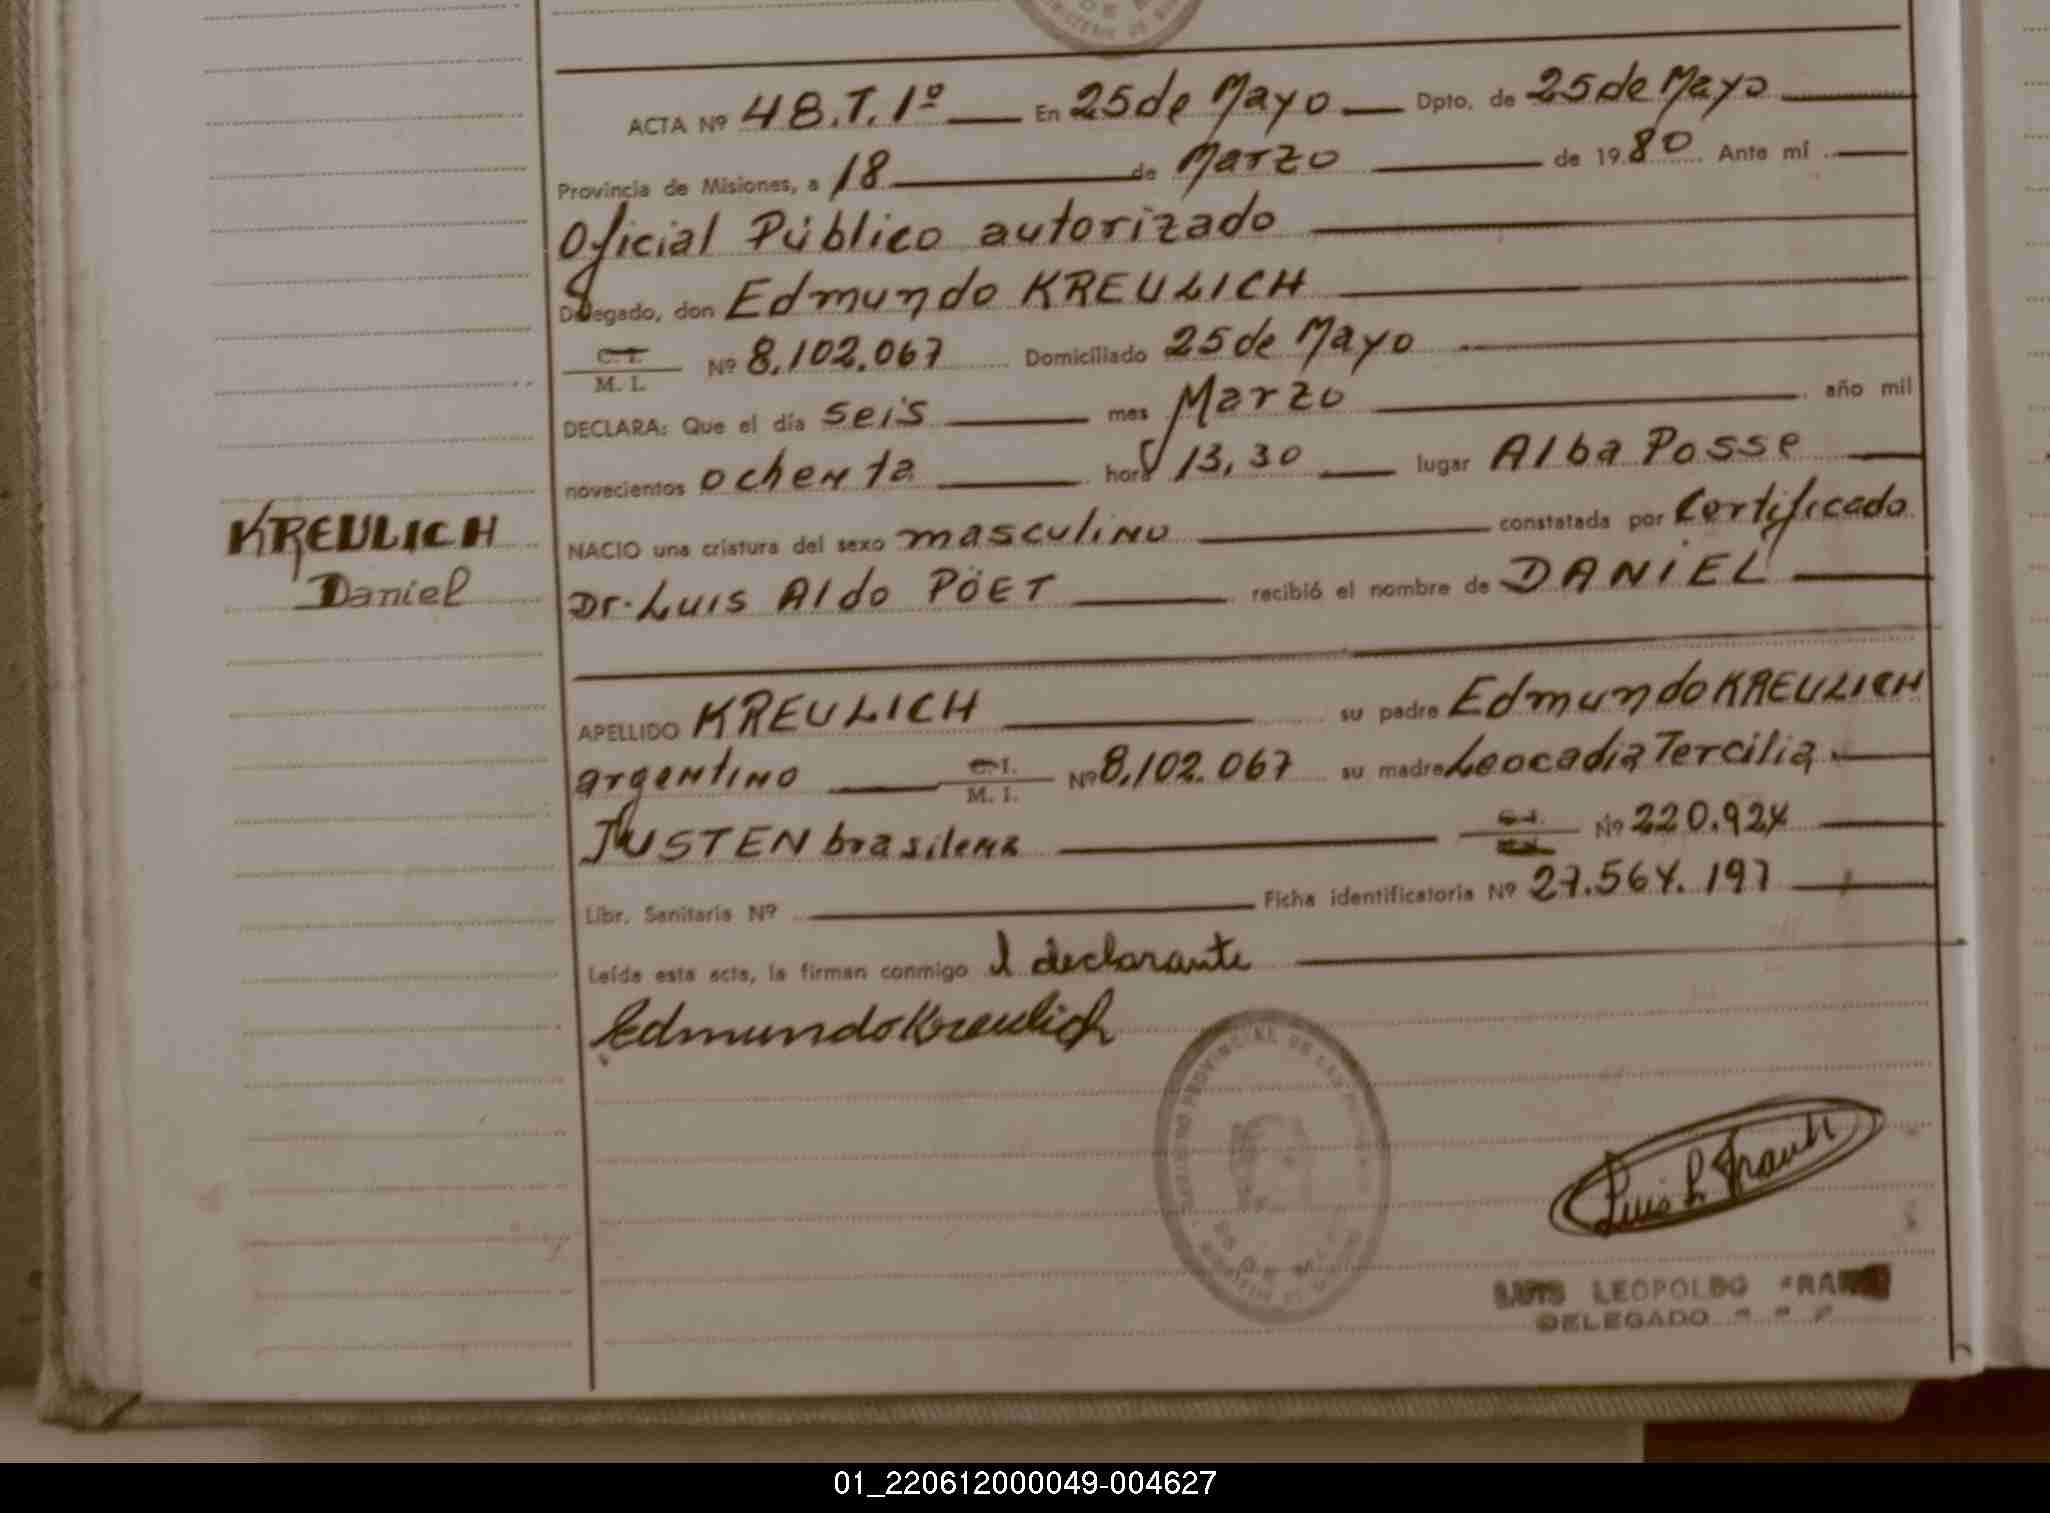 ACTA Nº 48.T.1º En 25 de Mayo Dpto. de 25 de Mayo
Provincia de Misiones, a 18 de Marzo de 1980 Ante mí
Oficial Público autorizado
Delegado, don Edmundo KREULICH
C. I. / M. I. Nº 8.102.067 Domiciliado 25 de Mayo
DECLARA: Que el día seis mes Marzo año mil
novecientos ochenta hora 13,30 lugar Alba Posse
NACIO una criatura del sexo masculino constatada por Certificado
Dr. Luis Aldo PÖET recibió el nombre de DANIEL
KREULICH
Daniel
APELLIDO KREULICH su padre Edmundo KREULICH
argentino C. I. / M. I. Nº 8.102.067 su madre Leocadia Tercilia
JUSTEN brasilena Nº 220.924
Libr. Sanitaria Nº Ficha identificatoria Nº 27.564.197
Leída esta acta, la firman conmigo el declarante
Edmundo Kreulich
PROVINCIAL DE LAS
Luis L.
LUIS LEOPOLDO
DELEGADO
01_220612000049-004627